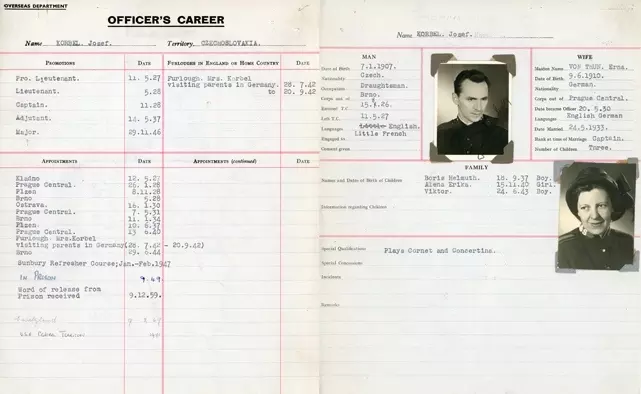 OVERSEAS DEPARTMENT
OFFICER'S CAREER
Name KORBEL, Josef. Territory, CZECHOSLOVAKIA.
PROMOTIONS DATE FURLOUGHS IN ENGLAND OR HOME COUNTRY DATE
Pro. Lieutenant. 11. 5.27 Furlough. Mrs. Korbel
visiting parents in Germany. 28. 7.42
to 20. 9.42
Lieutenant. 5.28
Captain. 11.28
Adjutant. 14. 5.37
Major. 29.11.46
APPOINTMENTS DATE APPOINTMENTS (continued) DATE
Kladno 12. 5.27
Prague Central. 26. 1.28
Plzen 8.11.28
Brno 5.28
Ostrava. 16. 1.30
Prague Central. 7. 5.31
Brno 11. 1.34
Plzen. 10. 6.37
Prague Central 13 6.40
Furlough. Mrs.Korbel
visiting parents in Germany(28. 7.42 - 20.9.42)
Brno 29. 6.44
Sunbury Refresher Course;Jan.-Feb.1947
IN PRISON 9.49
Word of release from
Prison received 9.12.59.
Name KORBEL, Josef.
MAN
Date of Birth 7.1.1907.
Nationality Czech.
Occupation Draughtsman.
Corps out of Brno.
Entered T.C. 15.8.26.
Left T.C. 11.5.27
Languages Little English.
Little French
Engaged to
Consent given
WIFE
Maiden Name VON THUN, Erna.
Date of Birth. 9.6.1910.
Nationality German.
Corps out of Prague Central.
Date became Officer 20. 5.30
Languages English German
Date Married 24.5.1933.
Rank at time of Marriage Captain.
Number of Children Three.
FAMILY
Names and Dates of Birth of Children Boris Helmuth. 18. 9.37 Boy.
Alena Erika. 15.11.40 Girl.
Viktor. 24. 6.43 Boy.
Information regarding Children
Special Qualifications Plays Cornet and Concertina.
Special Concessions
Incidents
Remarks